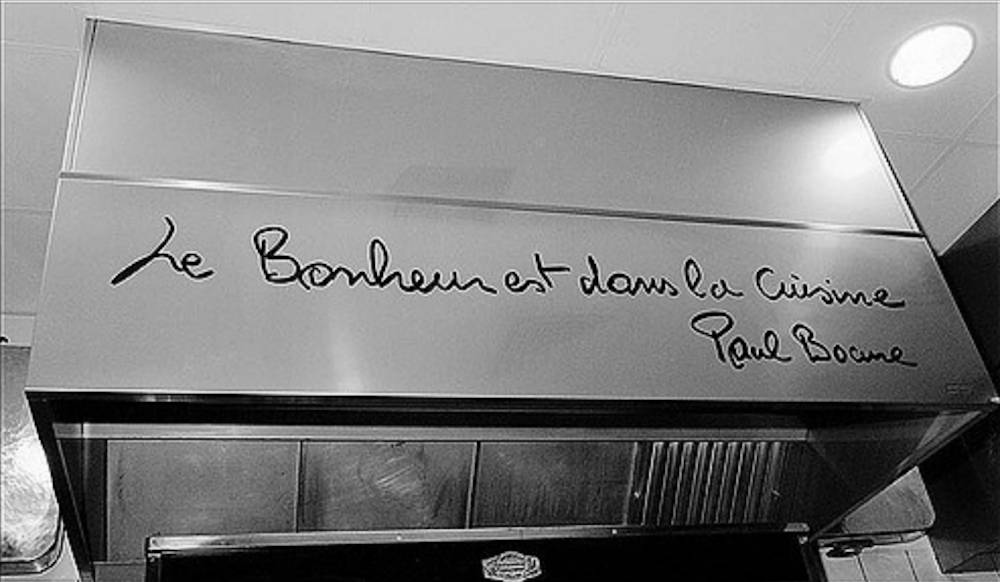 Le Bonheur est dans la Cuisine
Paul Bocuse